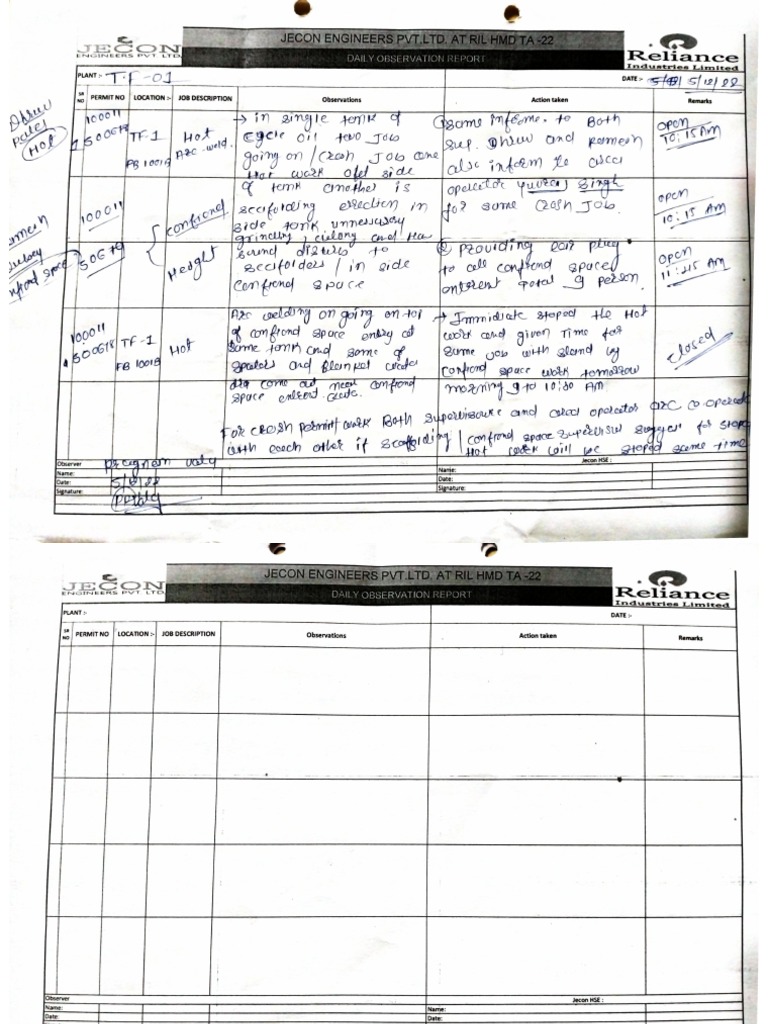 JECON
ENGINEERS PVT LTD.
JECON ENGINEERS PVT.LTD. AT RIL HMD TA -22
DAILY OBSERVATION REPORT
Reliance
Industries Limited
PLANT :- T.F-01
DATE :- 5/12/22
SR NO
PERMIT NO
LOCATION :-
JOB DESCRIPTION
Observations
Action taken
Remarks
Hot
100011
1 500618
TF-1
FB 1001B
Hot
Arc-weld.
→ in single tank of
cycle oil two Job
going on / Crash Job one
Hot work off side
① Same informe to Both
sup. Dhruv and Ramesh
also inform to
open
10:15 AM
100011
50679
confiend
Height
of tank another is
scaifolding erection in
side tank unnessary
grinding, and
sound to
scaifolders / in side
confiend space
operator Yuvraj Singh
for same Crash Job.
open
10:15 AM
② Providing ear plug
to all confiend space
entrent total 9 person.
open
11:15 AM
100011
500618
TF-1
FB 1001B
Hot
Arc welding on going on top
of confiend space entry at
same tank and some of
and Blanket
come out near confiend
space
→ Immidiate stoped the Hot
work and given Time for
same Job with stand by
confiend space work tomorrow
morning 9 to 10:30 AM
closed
For crash permit work Both supervisour and operator
with each other if scaffolding / confiend space supervisor for stop
Hot work will be stoped same time
Observer
Name:
Date: 5/12/22
Signature:
Jecon HSE :
Name:
Date:
Signature:
JECON
ENGINEERS PVT LTD.
JECON ENGINEERS PVT.LTD. AT RIL HMD TA -22
DAILY OBSERVATION REPORT
Reliance
Industries Limited
PLANT :-
DATE :-
SR NO
PERMIT NO
LOCATION :-
JOB DESCRIPTION
Observations
Action taken
Remarks
Observer
Name:
Date:
Jecon HSE :
Name:
Date: